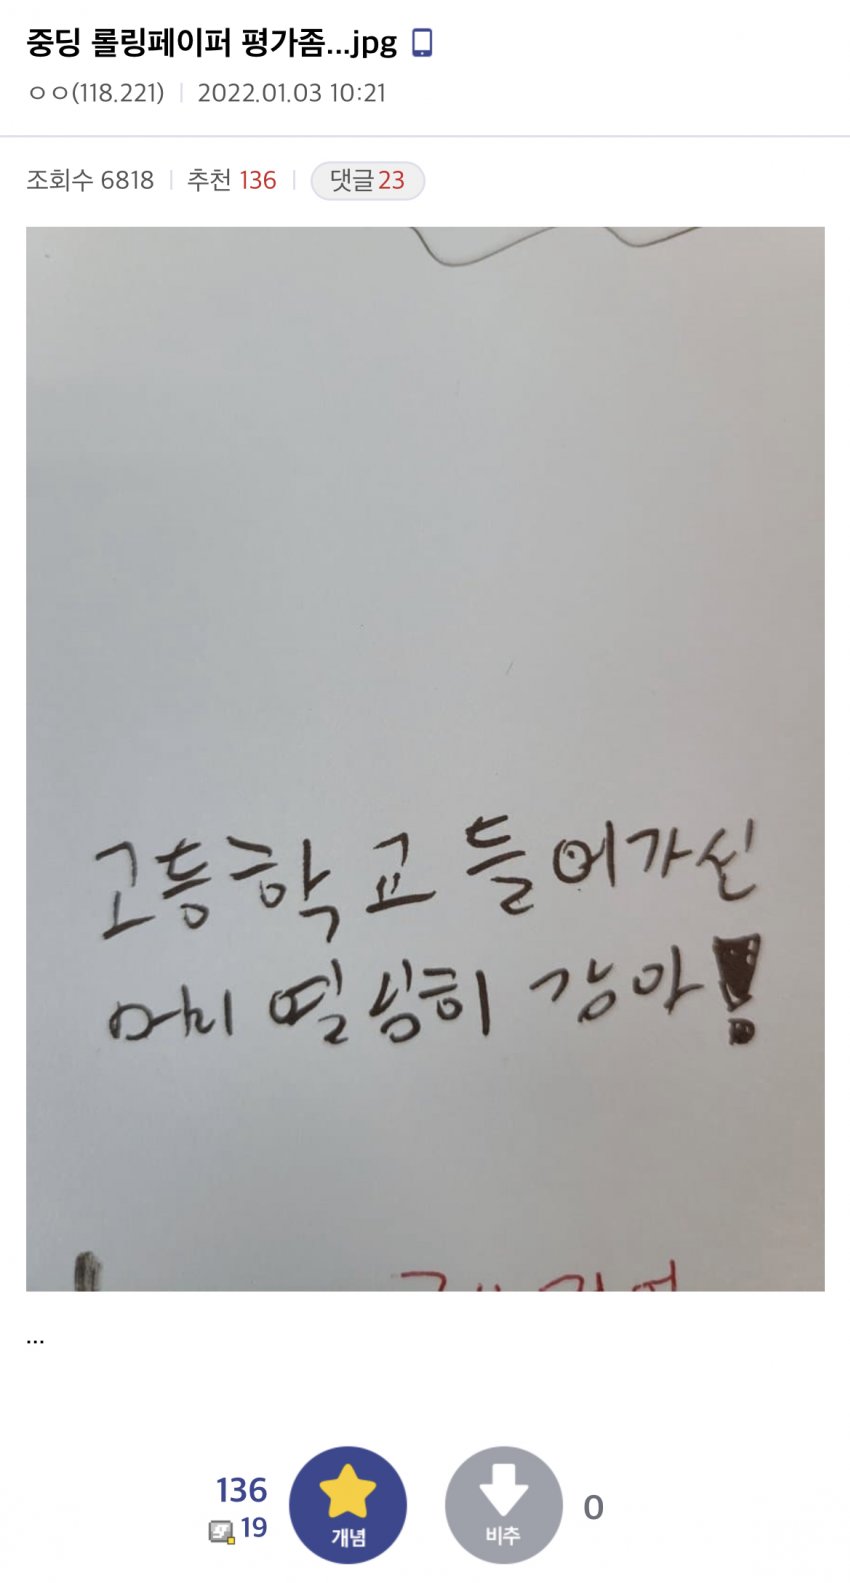 중딩 롤링페이퍼 평가좀...jpg
ㅇㅇ(118.221) 2022.01.03 10:21
조회수 6818 추천 136 댓글 23
고등학교 들어가신
머리 열심히 감아!
...
136
19
개념
비추
0